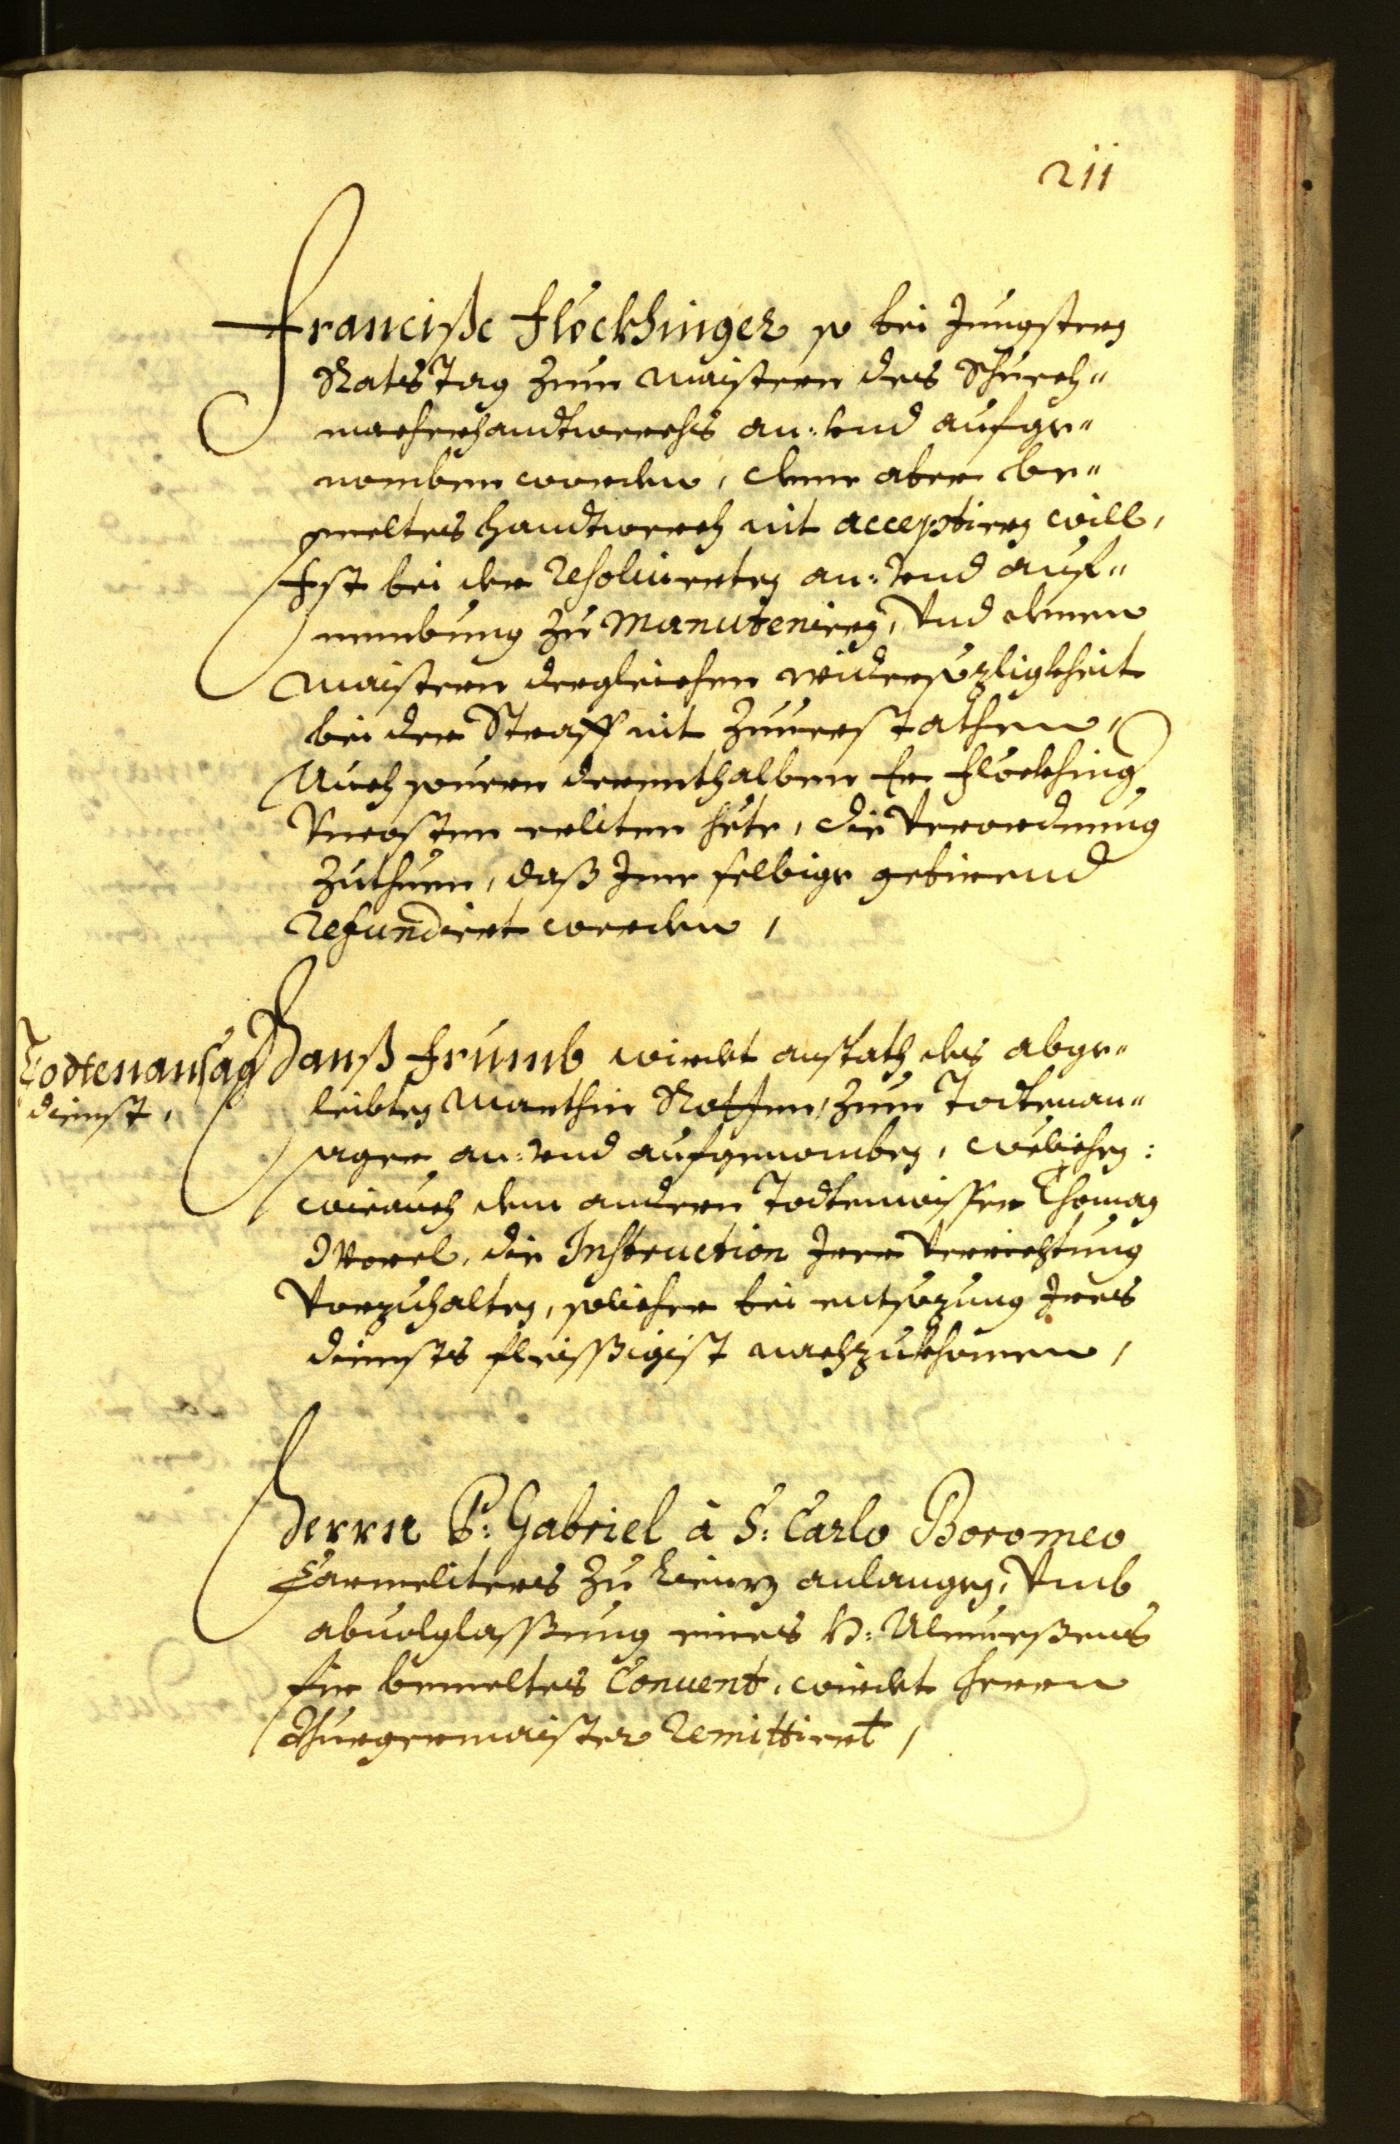 211
Francisc Flöckhinger so bei Jungsten
Rats Tag zum Maistern des Schuech-
macherhandtwerchs an: vnd aufge-
nomben worden, deme aber be-
meltes Handtwerch nit acceptiern will,
Ist bei der resoluierten an: vnd auf-
nembung zu manuteniern, Vnd denen
Maistern dergleichen widersezligkheit
bei der Straff nit zuuerstathen,
Auch souern derenthalben Er Flöckhing
Vncossten erliten hete, die Verordnung
zuthuen, daß Ime selbige gebirend
refundiert werden,
Todtenansag
dienst,
Hanß Frumb wirdet anstath des abge-
leibten Marthin zum Todtenan-
sager an: vnd aufgenomben, welichen:
wie auch dem andern Todtenansager Thoman
die Instruction Irer Verrichtung
Vorzuhalten, solicher bei entsezung Ires
diensts fleissigist nachzukhomen,
Herrn P: Gabriel à S: Carlo Boromeo
Carmeliters zu Lienz anlangen, Vmb
abuolglassung eines H: Almuesens
für bemeltes Conuent, wirdet herrn
Burgermaister remittiert,